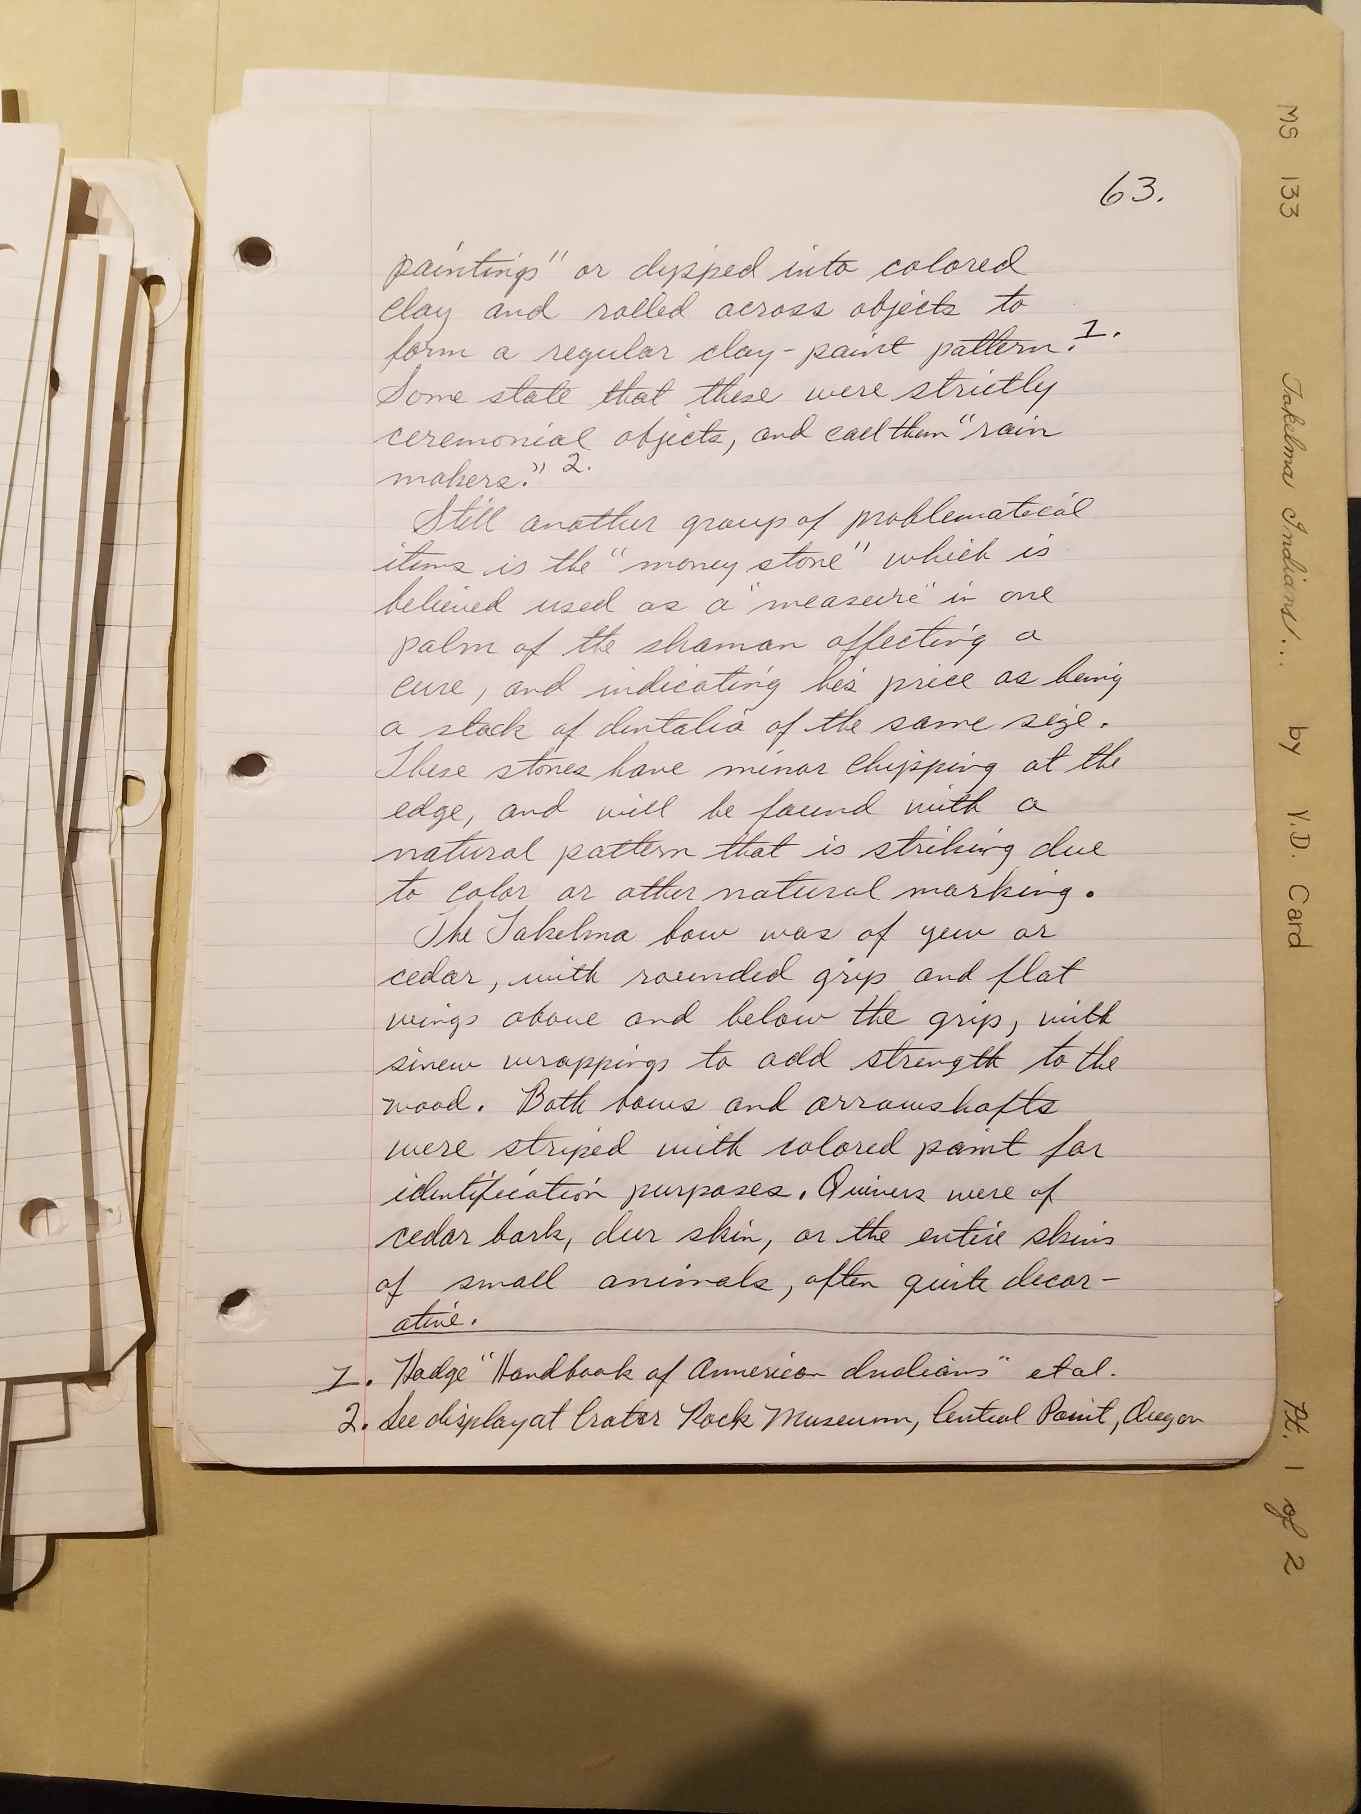 63.
paintings" or dipped into colored
clay and rolled across objects to
form a regular clay-paint pattern.1.
Some state that these were strictly
ceremonial objects, and call them "rain
makers." 2.
Still another group of problematical
items is the "money stone" which is
believed used as a "measure" in one
palm of the shaman affecting a
cure, and indicating his price as being
a stack of dentalia of the same size.
These stones have minor chipping at the
edge, and will be found with a
natural pattern that is striking due
to color or other natural marking.
The Takelma bow was of yew or
cedar, with rounded grip and flat
wings above and below the grip, with
sinew wrappings to add strength to the
wood. Both bows and arrowshafts
were striped with colored paint for
identification purposes. Quivers were of
cedar bark, deer skin, or the entire skins
of small animals, often quite decor-
ative.
1. Hodge "Handbook of American Indians" et al.
2. See display at Crater Rock Museum, Central Point, Oregon
MS 133 Takelma Indians... by Y.D. Card Pt. 1 of 2